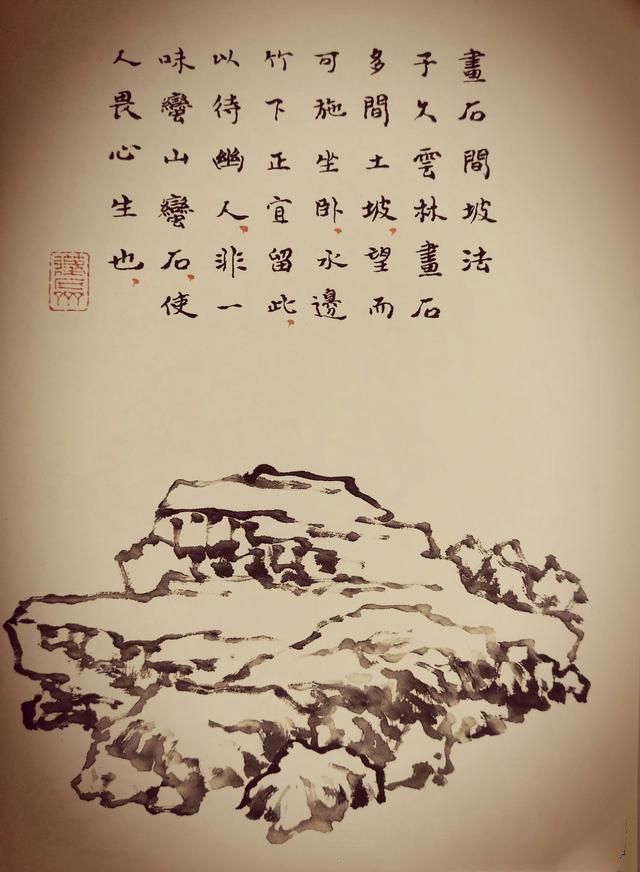 畫石間坡法
子久雲林畫石
多間土坡望而
可施坐卧水邊
竹下正宜留此
以待幽人非一
味蠻山蠻石使
人畏心生也